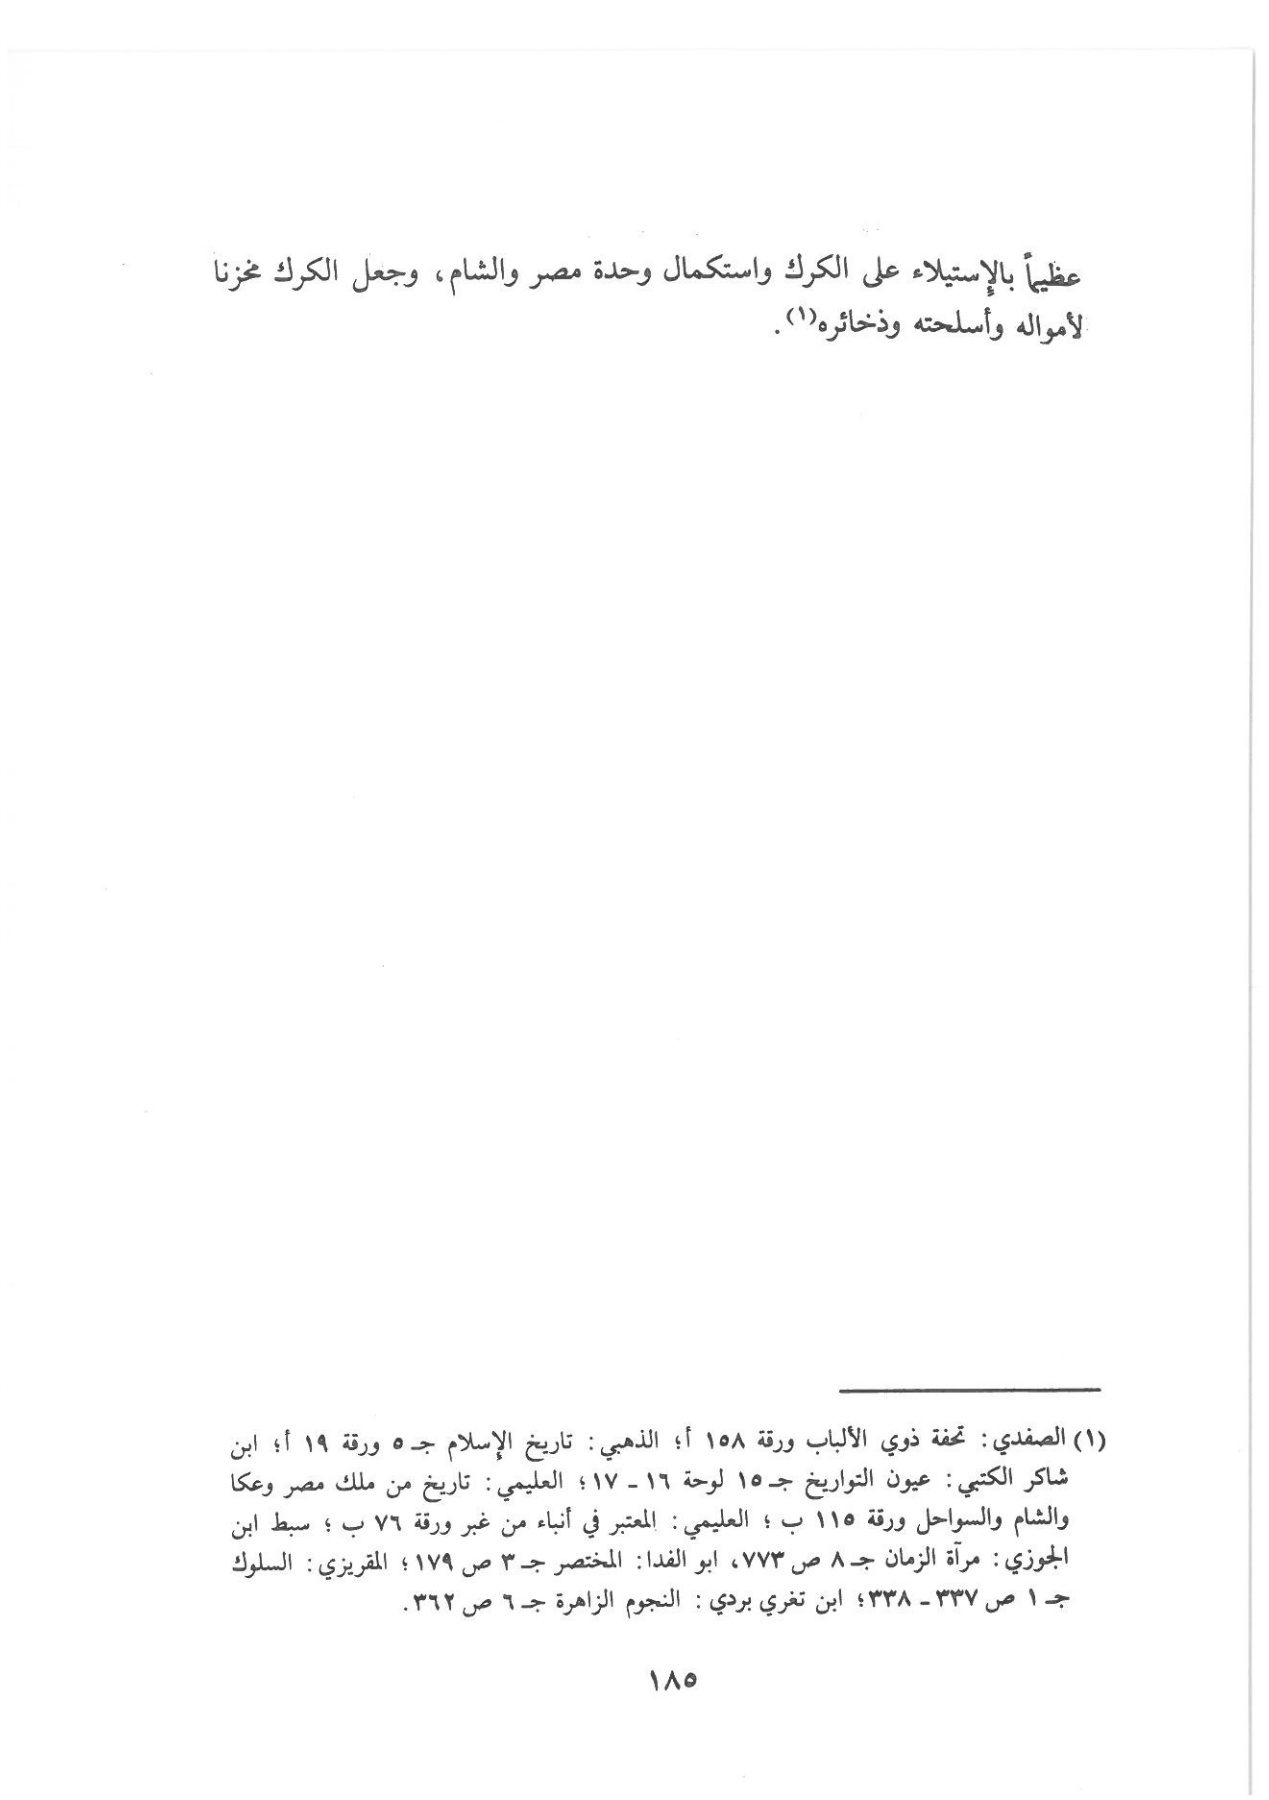 عظيماً بالإستيلاء على الكرك واستكمال وحدة مصر والشام، وجعل الكرك مخزنا
لأمواله وأسلحته وذخائره(١).
(١) الصفدي: تحفة ذوي الألباب ورقة ١٥٨ أ؛ الذهبي: تاريخ الإسلام جـ ٥ ورقة ١٩ أ؛ ابن
شاكر الكتبي: عيون التواريخ جـ ١٥ لوحة ١٦ ـ ١٧؛ العليمي: تاريخ من ملك مصر وعكا
والشام والسواحل ورقة ١١٥ ب؛ العليمي: المعتبر في أنباء من غبر ورقة ٧٦ ب؛ سبط ابن
الجوزي: مرآة الزمان جـ ٨ ص ٧٧٣، ابو الفدا: المختصر جـ ٣ ص ١٧٩؛ المقريزي: السلوك
جـ ١ ص ٣٣٧ ـ ٣٣٨؛ ابن تغري بردي: النجوم الزاهرة جـ ٦ ص ٣٦٢.
١٨٥